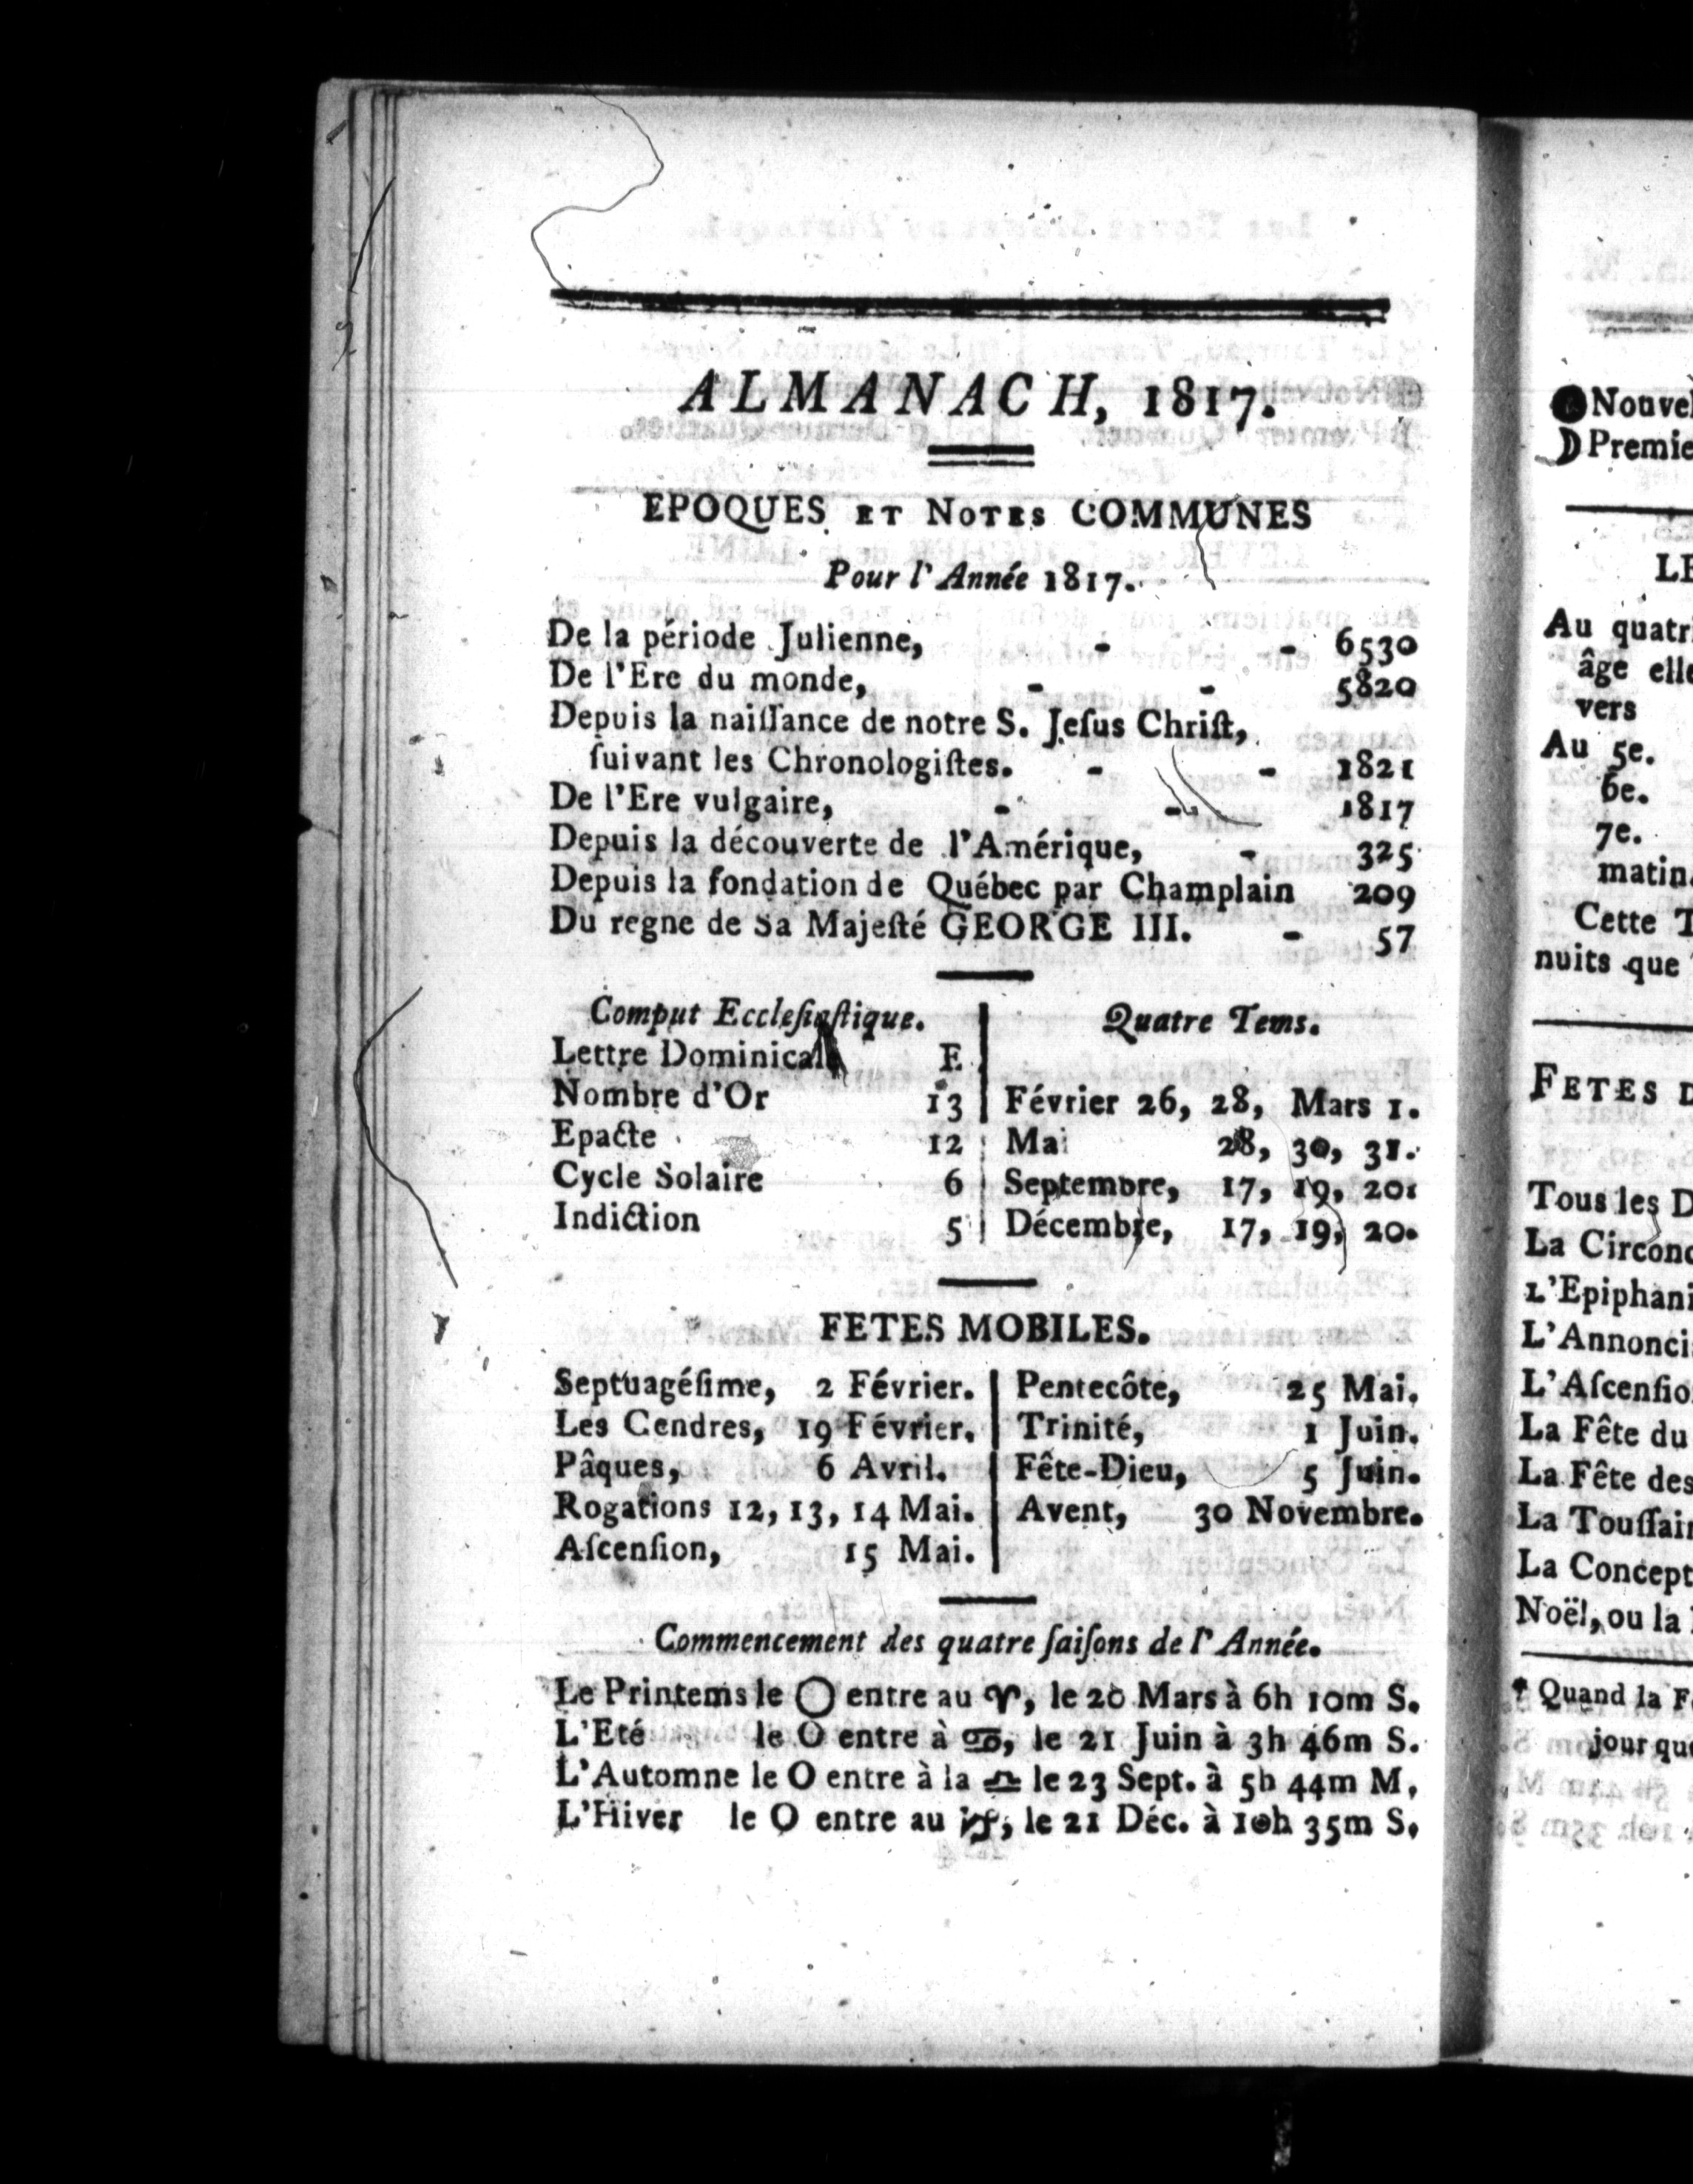 ALMANACH, 1817.
EPOQUES ET NOTES COMMUNES
Pour l'Année 1817.
De la période Julienne, - - 6530
De l'Ere du monde, - - 5820
Depuis la naiſſance de notre S. Jeſus Chriſt,
ſuivant les Chronologiſtes. - - 1821
De l'Ere vulgaire, - - 1817
Depuis la découverte de l'Amérique, - 325
Depuis la fondation de Québec par Champlain 209
Du regne de Sa Majeſté GEORGE III. - 57
Comput Eccleſiaſtique.
Lettre Dominicale E
Nombre d'Or 13
Epacte 12
Cycle Solaire 6
Indiction 5
Quatre Tems.
Février 26, 28, Mars 1.
Mai 28, 30, 31.
Septembre, 17, 19, 20.
Décembre, 17, 19, 20.
FETES MOBILES.
Septuagéſime, 2 Février.
Les Cendres, 19 Février.
Pâques, 6 Avril.
Rogations 12, 13, 14 Mai.
Aſcenſion, 15 Mai.
Pentecôte, 25 Mai.
Trinité, 1 Juin.
Fête-Dieu, 5 Juin.
Avent, 30 Novembre.
Commencement des quatre ſaiſons de l'Année.
Le Printems le O entre au ♈, le 20 Mars à 6h 10m S.
L'Eté le O entre à ♋, le 21 Juin à 3h 46m S.
L'Automne le O entre à la ♎ le 23 Sept. à 5h 44m M.
L'Hiver le O entre au ♑, le 21 Déc. à 10h 35m S.
Au quatri
âge elle
vers
Au 5e.
6e.
7e.
matin
Cette
nuits que
FETES
Tous les D
La Circonc
L'Epiphani
L'Annonci
L'Aſcenſio
La Fête du
La Fête des
La Touſſain
La Concept
Noël, ou la
Quand la
jour que